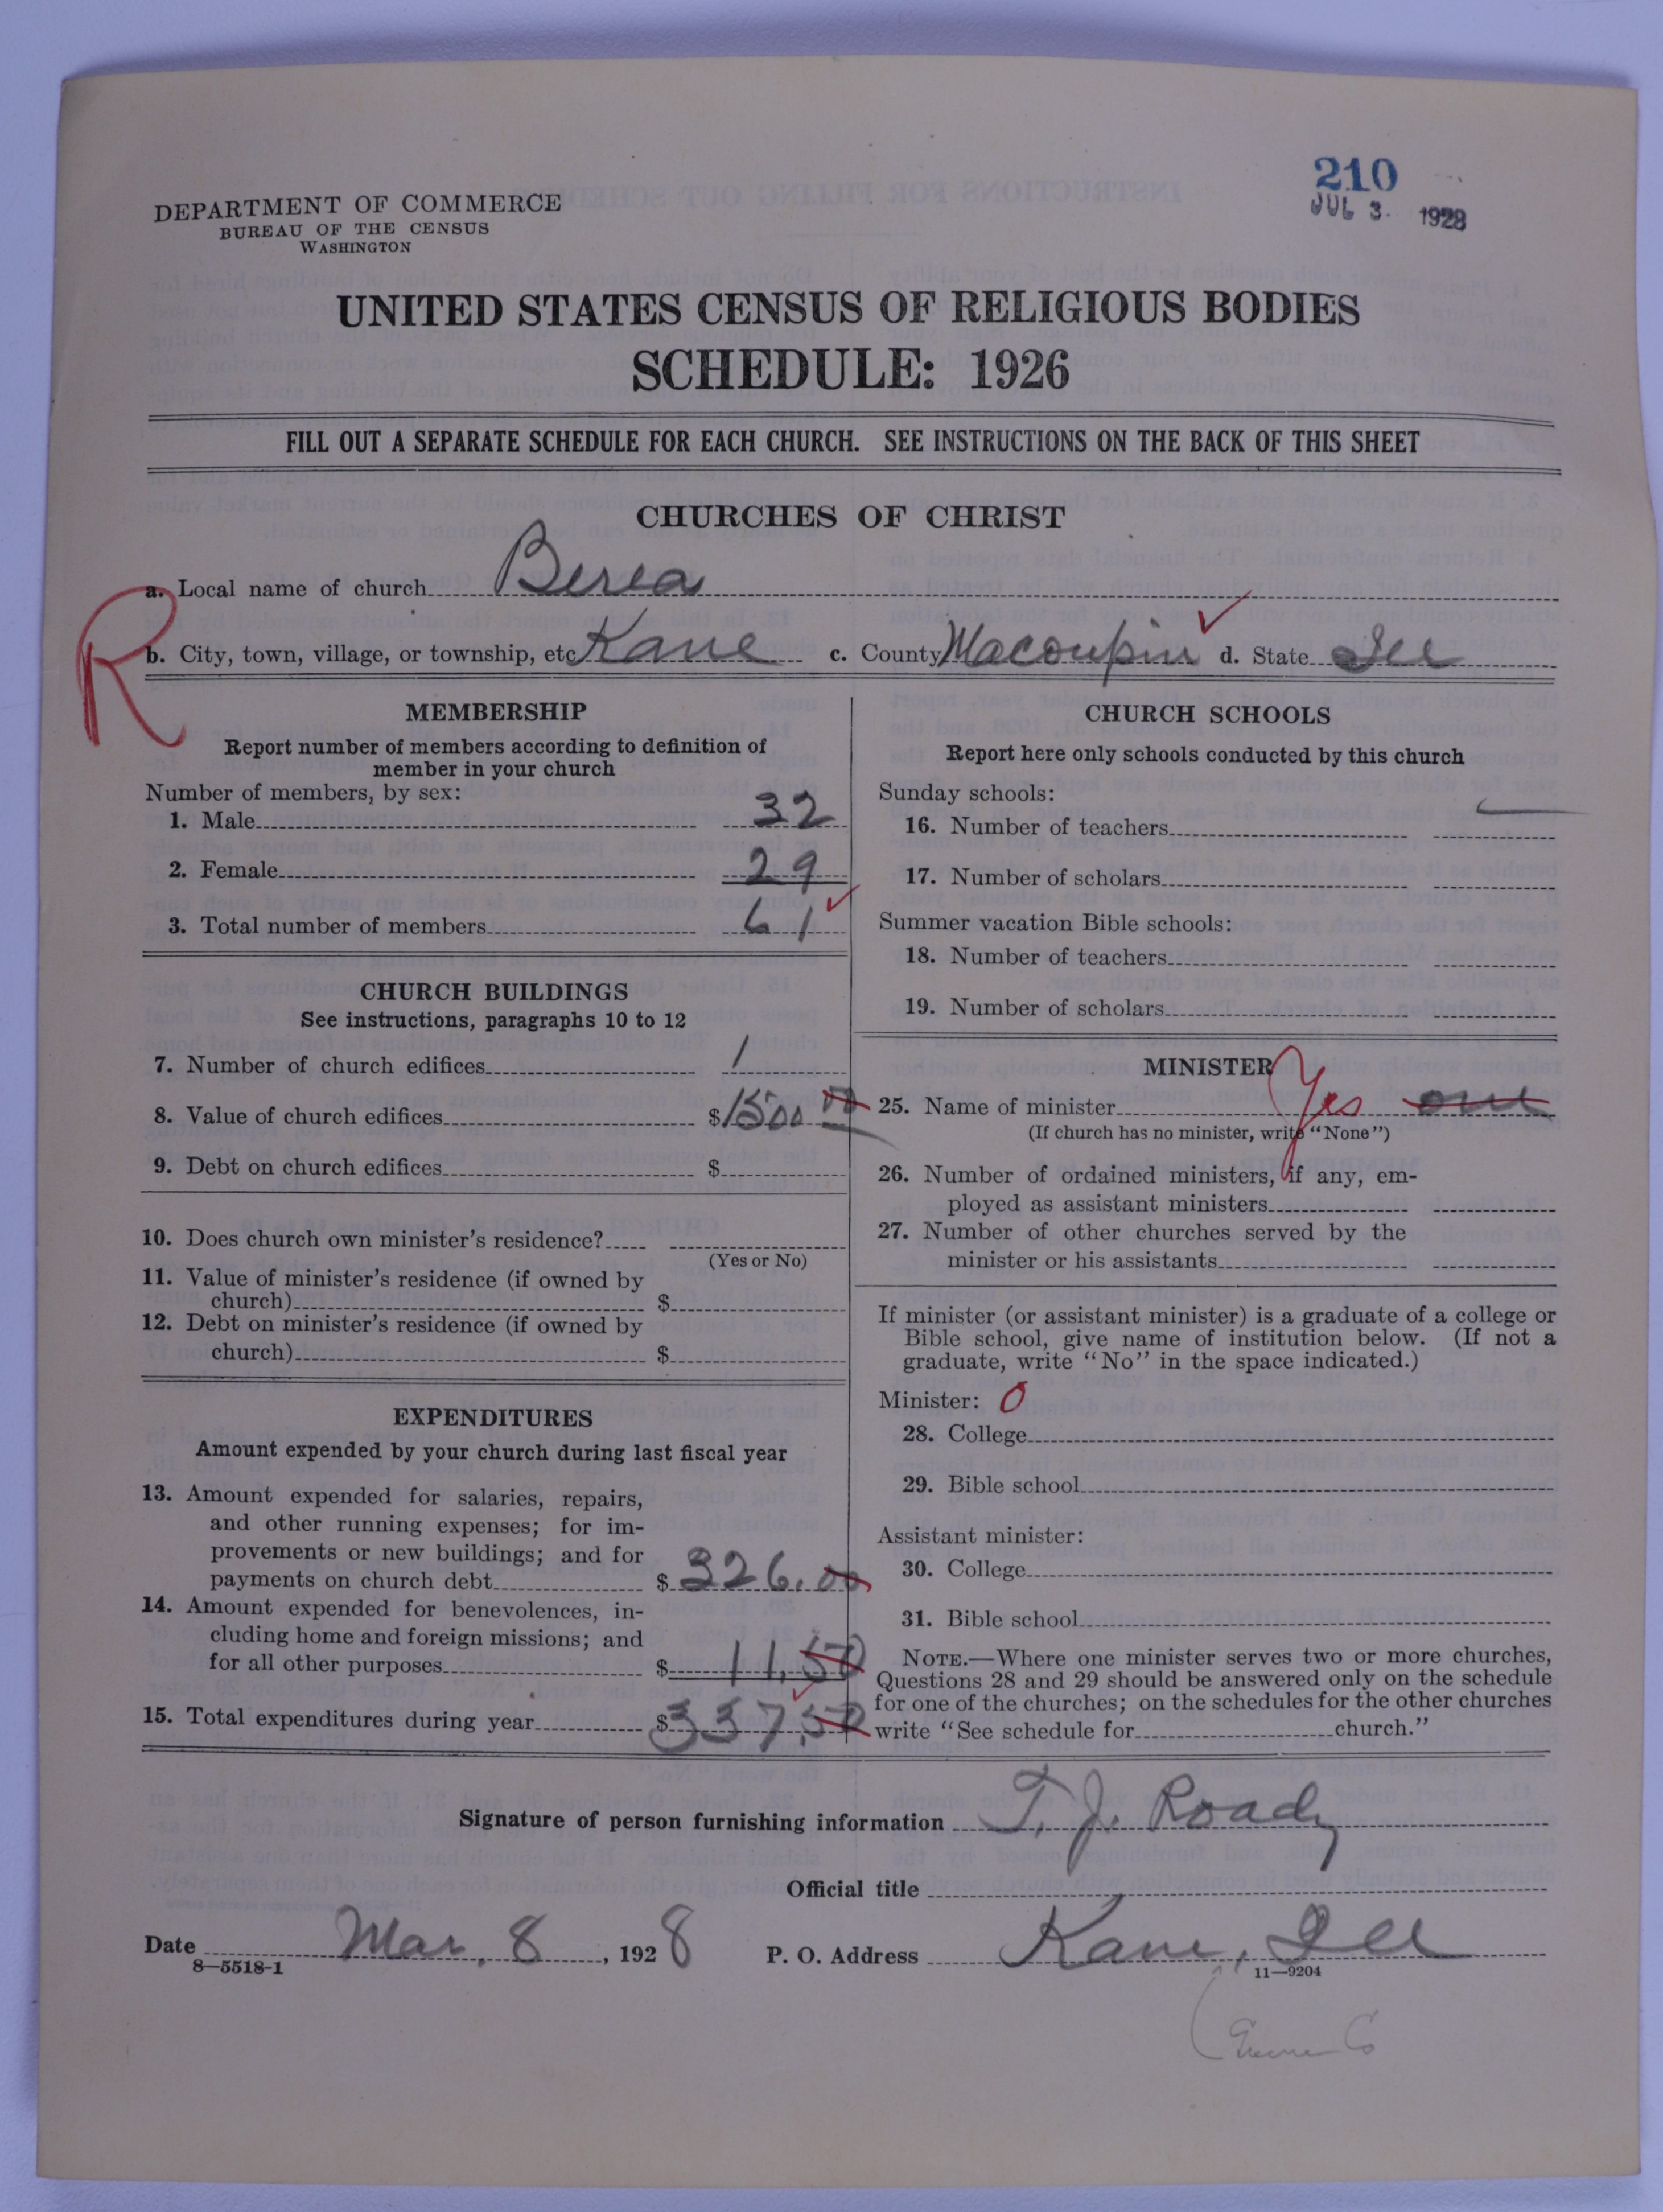 210
JUL 3. 1928
DEPARTMENT OF COMMERCE
BUREAU OF THE CENSUS
WASHINGTON
UNITED STATES CENSUS OF RELIGIOUS BODIES
SCHEDULE: 1926
FILL OUT A SEPARATE SCHEDULE FOR EACH CHURCH. SEE INSTRUCTIONS ON THE BACK OF THIS SHEET
CHURCHES OF CHRIST
a. Local name of church Berea
R
b. City, town, village, or township, etc Kane c. County Macoupin d. State Ill
MEMBERSHIP
Report number of members according to definition of
member in your church
Number of members, by sex:
1. Male 32
2. Female 29
3. Total number of members 61
CHURCH BUILDINGS
See instructions, paragraphs 10 to 12
7. Number of church edifices 1
8. Value of church edifices $1500 00
9. Debt on church edifices $
10. Does church own minister's residence?
(Yes or No)
11. Value of minister's residence (if owned by
church) $
12. Debt on minister's residence (if owned by
church) $
EXPENDITURES
Amount expended by your church during last fiscal year
13. Amount expended for salaries, repairs,
and other running expenses; for im-
provements or new buildings; and for
payments on church debt $ 326.00
14. Amount expended for benevolences, in-
cluding home and foreign missions; and
for all other purposes $ 11.50
15. Total expenditures during year $337.50
CHURCH SCHOOLS
Report here only schools conducted by this church
Sunday schools:
16. Number of teachers
17. Number of scholars
Summer vacation Bible schools:
18. Number of teachers
19. Number of scholars
MINISTER
25. Name of minister Yes one
(If church has no minister, write "None")
26. Number of ordained ministers, if any, em-
ployed as assistant ministers
27. Number of other churches served by the
minister or his assistants
If minister (or assistant minister) is a graduate of a college or
Bible school, give name of institution below. (If not a
graduate, write "No" in the space indicated.)
Minister: 0
28. College
29. Bible school
Assistant minister:
30. College
31. Bible school
NOTE.—Where one minister serves two or more churches,
Questions 28 and 29 should be answered only on the schedule
for one of the churches; on the schedules for the other churches
write "See schedule for church."
Signature of person furnishing information T. J. Roady
Official title
Date Mar. 8, 1928 P. O. Address Kane, Ill
8—5518-1 11—9204